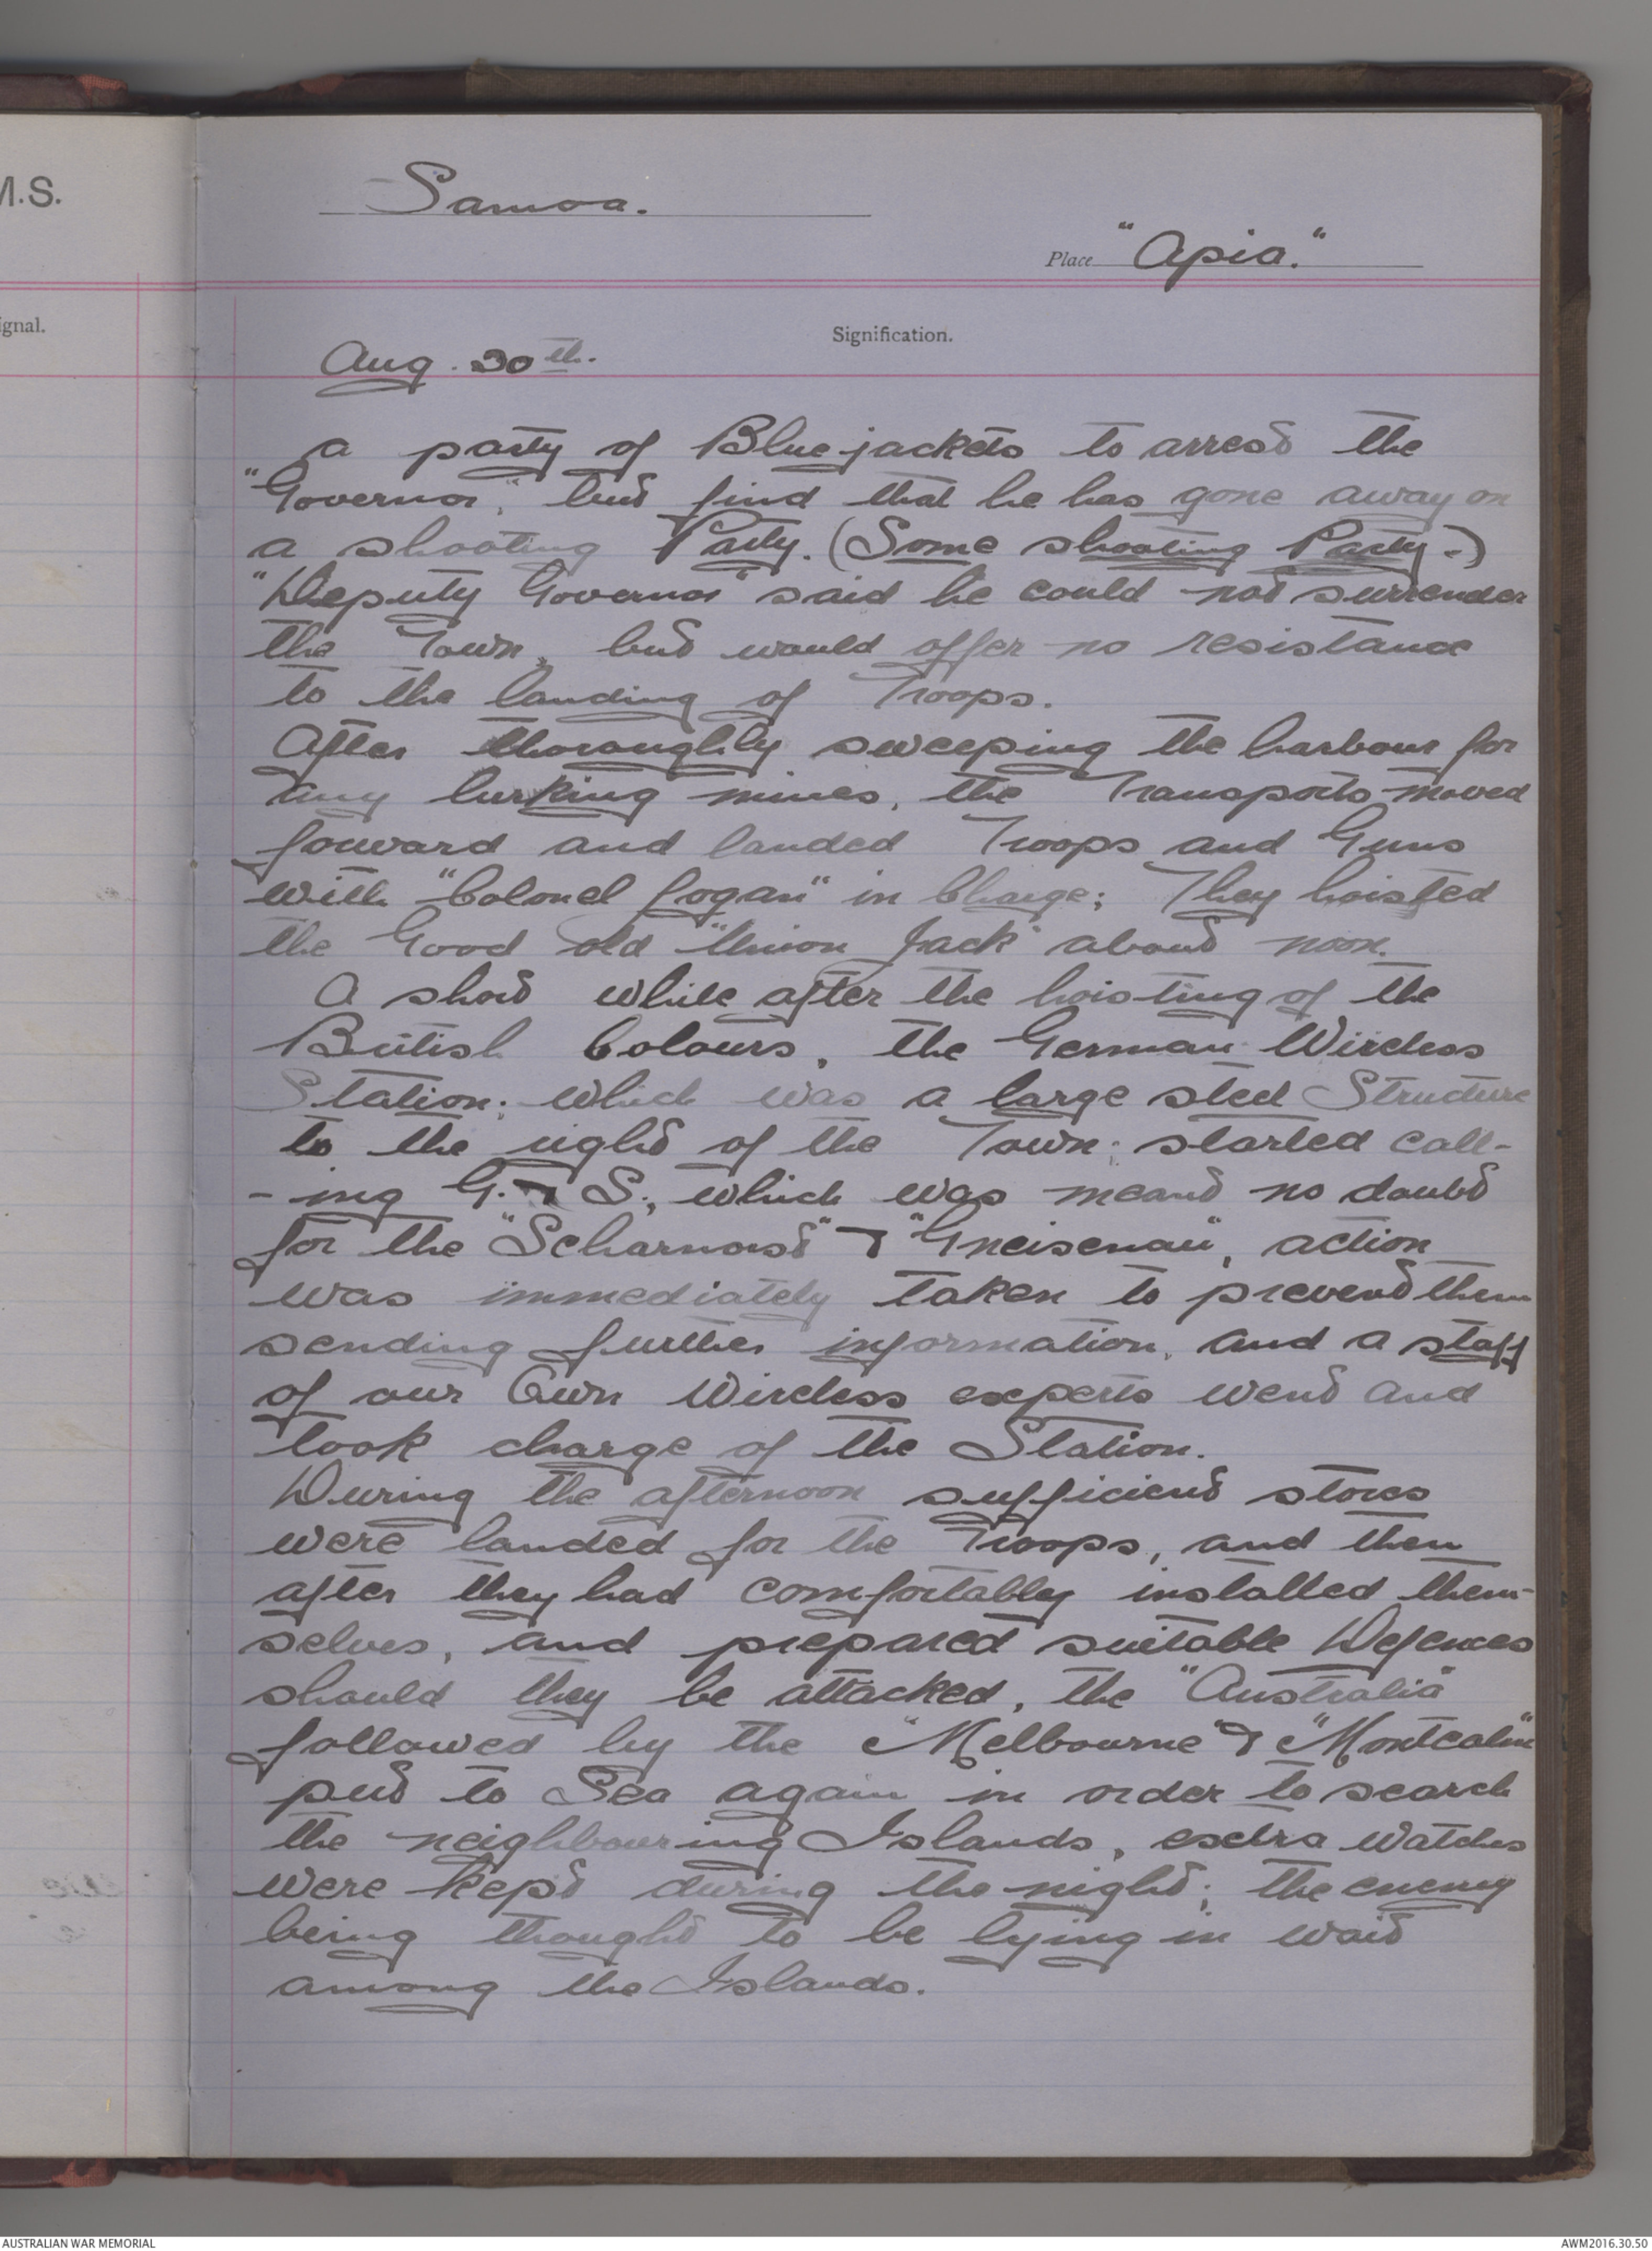 M.S.
Samoa.
Place "Apia."
ignal.
Signification.
Aug. 30th.
a party of Bluejackets to arrest the
"Governor," but find that he has gone away on
a shooting Party. (Some shooting Party.)
"Deputy Governor" said he could not surrender
the Town, but would offer no resistance
to the landing of Troops.
After thoroughly sweeping the harbour for
any lurking mines, the Transports moved
forward and landed Troops and Guns
with "Colonel Logan" in Charge; They hoisted
the Good old "Union Jack" about noon.
A short while after the hoisting of the
British Colours, the German Wireless
Station; which was a large steel Structure
to the right of the Town; started call-
-ing G. & S; which was meant no doubt
for the "Scharnorst" & "Gneisenau", action
was immediately taken to prevent them
sending further information, and a staff
of our Own Wireless experts went and
took charge of the Station.
During the afternoon sufficient stores
were landed for the Troops, and then
after they had comfortably installed them-
selves, and prepared suitable Defences
should they be attacked, the "Australia"
followed by the "Melbourne" & "Montcalm"
put to Sea again in order to search
the neighbouring Islands, exstra watches
were kept during the night; the enemy
being thought to be lying in wait
among the Islands.
AUSTRALIAN WAR MEMORIAL
AWM2016.30.50